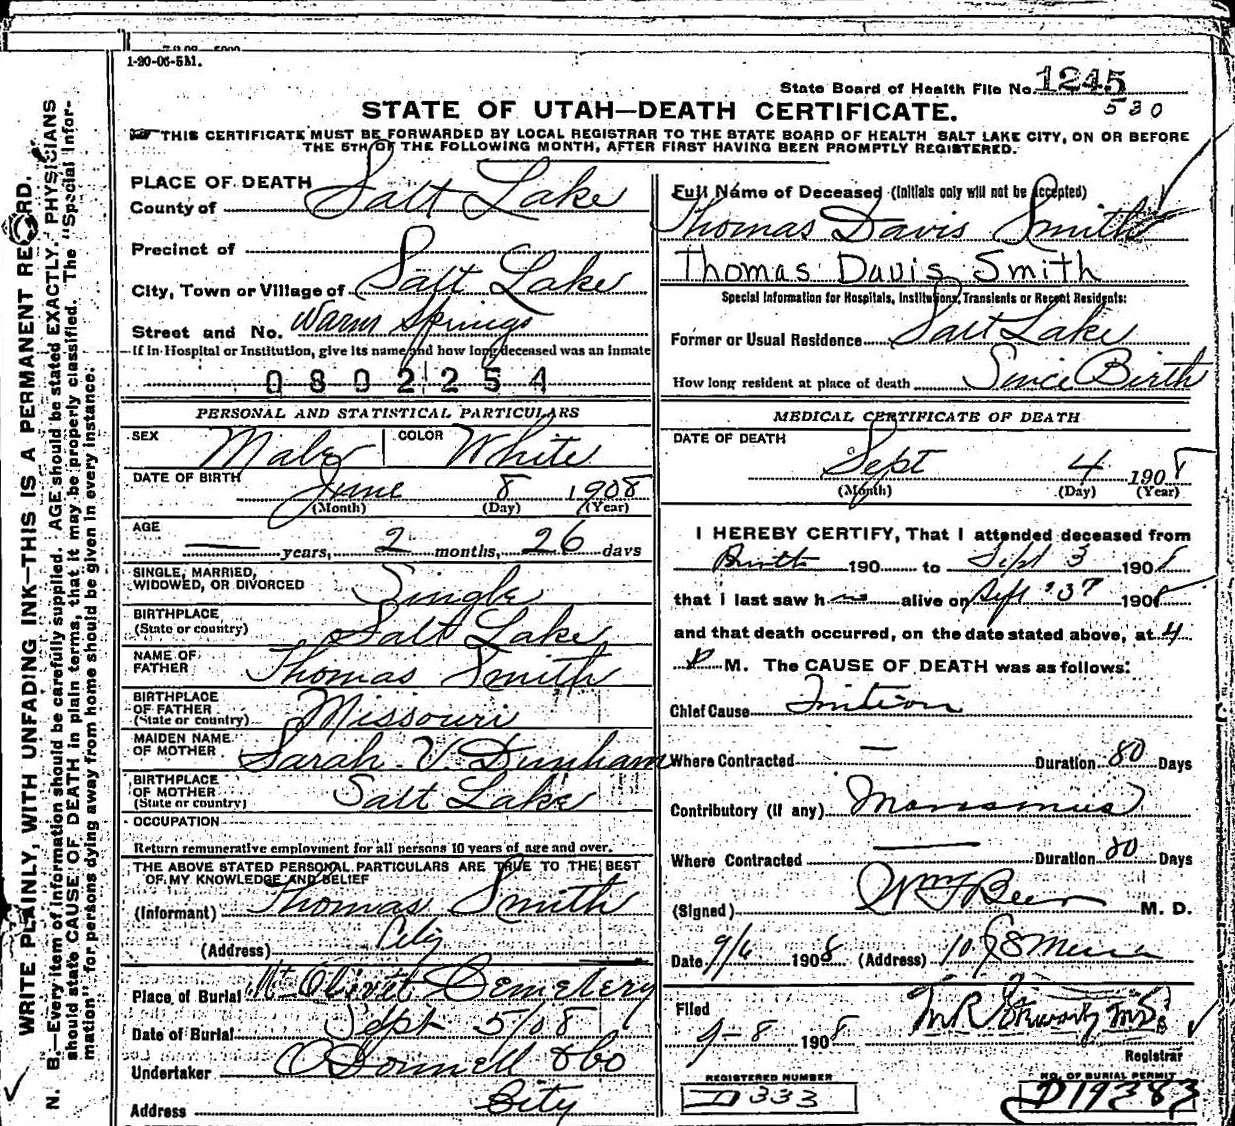 1-20-06-5M.
State Board of Health File No. 1245
530
STATE OF UTAH—DEATH CERTIFICATE.
THIS CERTIFICATE MUST BE FORWARDED BY LOCAL REGISTRAR TO THE STATE BOARD OF HEALTH SALT LAKE CITY, ON OR BEFORE
THE 5TH OF THE FOLLOWING MONTH, AFTER FIRST HAVING BEEN PROMPTLY REGISTERED.
WRITE PLAINLY, WITH UNFADING INK—THIS IS A PERMANENT RECORD.
N. B.—Every item of information should be carefully supplied. AGE should be stated EXACTLY. PHYSICIANS
should state CAUSE OF DEATH in plain terms, that it may be properly classified. The "Special Infor-
mation" for persons dying away from home should be given in every instance.
PLACE OF DEATH
County of Salt Lake
Precinct of
City, Town or Village of Salt Lake
Street and No. Warm Springs
If in Hospital or Institution, give its name and how long deceased was an inmate
0802254
PERSONAL AND STATISTICAL PARTICULARS
SEX Male COLOR White
DATE OF BIRTH June 8 1908
(Month) (Day) (Year)
AGE — years, 2 months, 26 days
SINGLE, MARRIED,
WIDOWED, OR DIVORCED Single
BIRTHPLACE
(State or country) Salt Lake
NAME OF
FATHER Thomas Smith
BIRTHPLACE
OF FATHER
(State or country) Missouri
MAIDEN NAME
OF MOTHER Sarah V. Dunham
BIRTHPLACE
OF MOTHER
(State or country) Salt Lake
OCCUPATION
Return remunerative employment for all persons 10 years of age and over.
THE ABOVE STATED PERSONAL PARTICULARS ARE TRUE TO THE BEST
OF MY KNOWLEDGE AND BELIEF
(Informant) Thomas Smith
(Address) City
Place of Burial Mt Olivet Cemetery
Date of Burial Sept 5/08
Undertaker O'Donnell & Co
Address City
Full Name of Deceased (Initials only will not be accepted)
Thomas Davis Smith
Thomas Davis Smith
Special Information for Hospitals, Institutions, Transients or Recent Residents:
Former or Usual Residence Salt Lake
How long resident at place of death Since Birth
MEDICAL CERTIFICATE OF DEATH
DATE OF DEATH
Sept 4 1908
(Month) (Day) (Year)
I HEREBY CERTIFY, That I attended deceased from
Birth 190 to Sept 3 1908
that I last saw h alive on Sept 3 1908
and that death occurred, on the date stated above, at 4
P M. The CAUSE OF DEATH was as follows:
Chief Cause
Where Contracted — Duration 80 Days
Contributory (if any) Marasmus
Where Contracted — Duration 80 Days
(Signed) Wm F Beer M. D.
Date 9/6 1908 (Address)
Filed
9-8 1908
Registrar
REGISTERED NUMBER
D 333
NO. OF BURIAL PERMIT
D19383